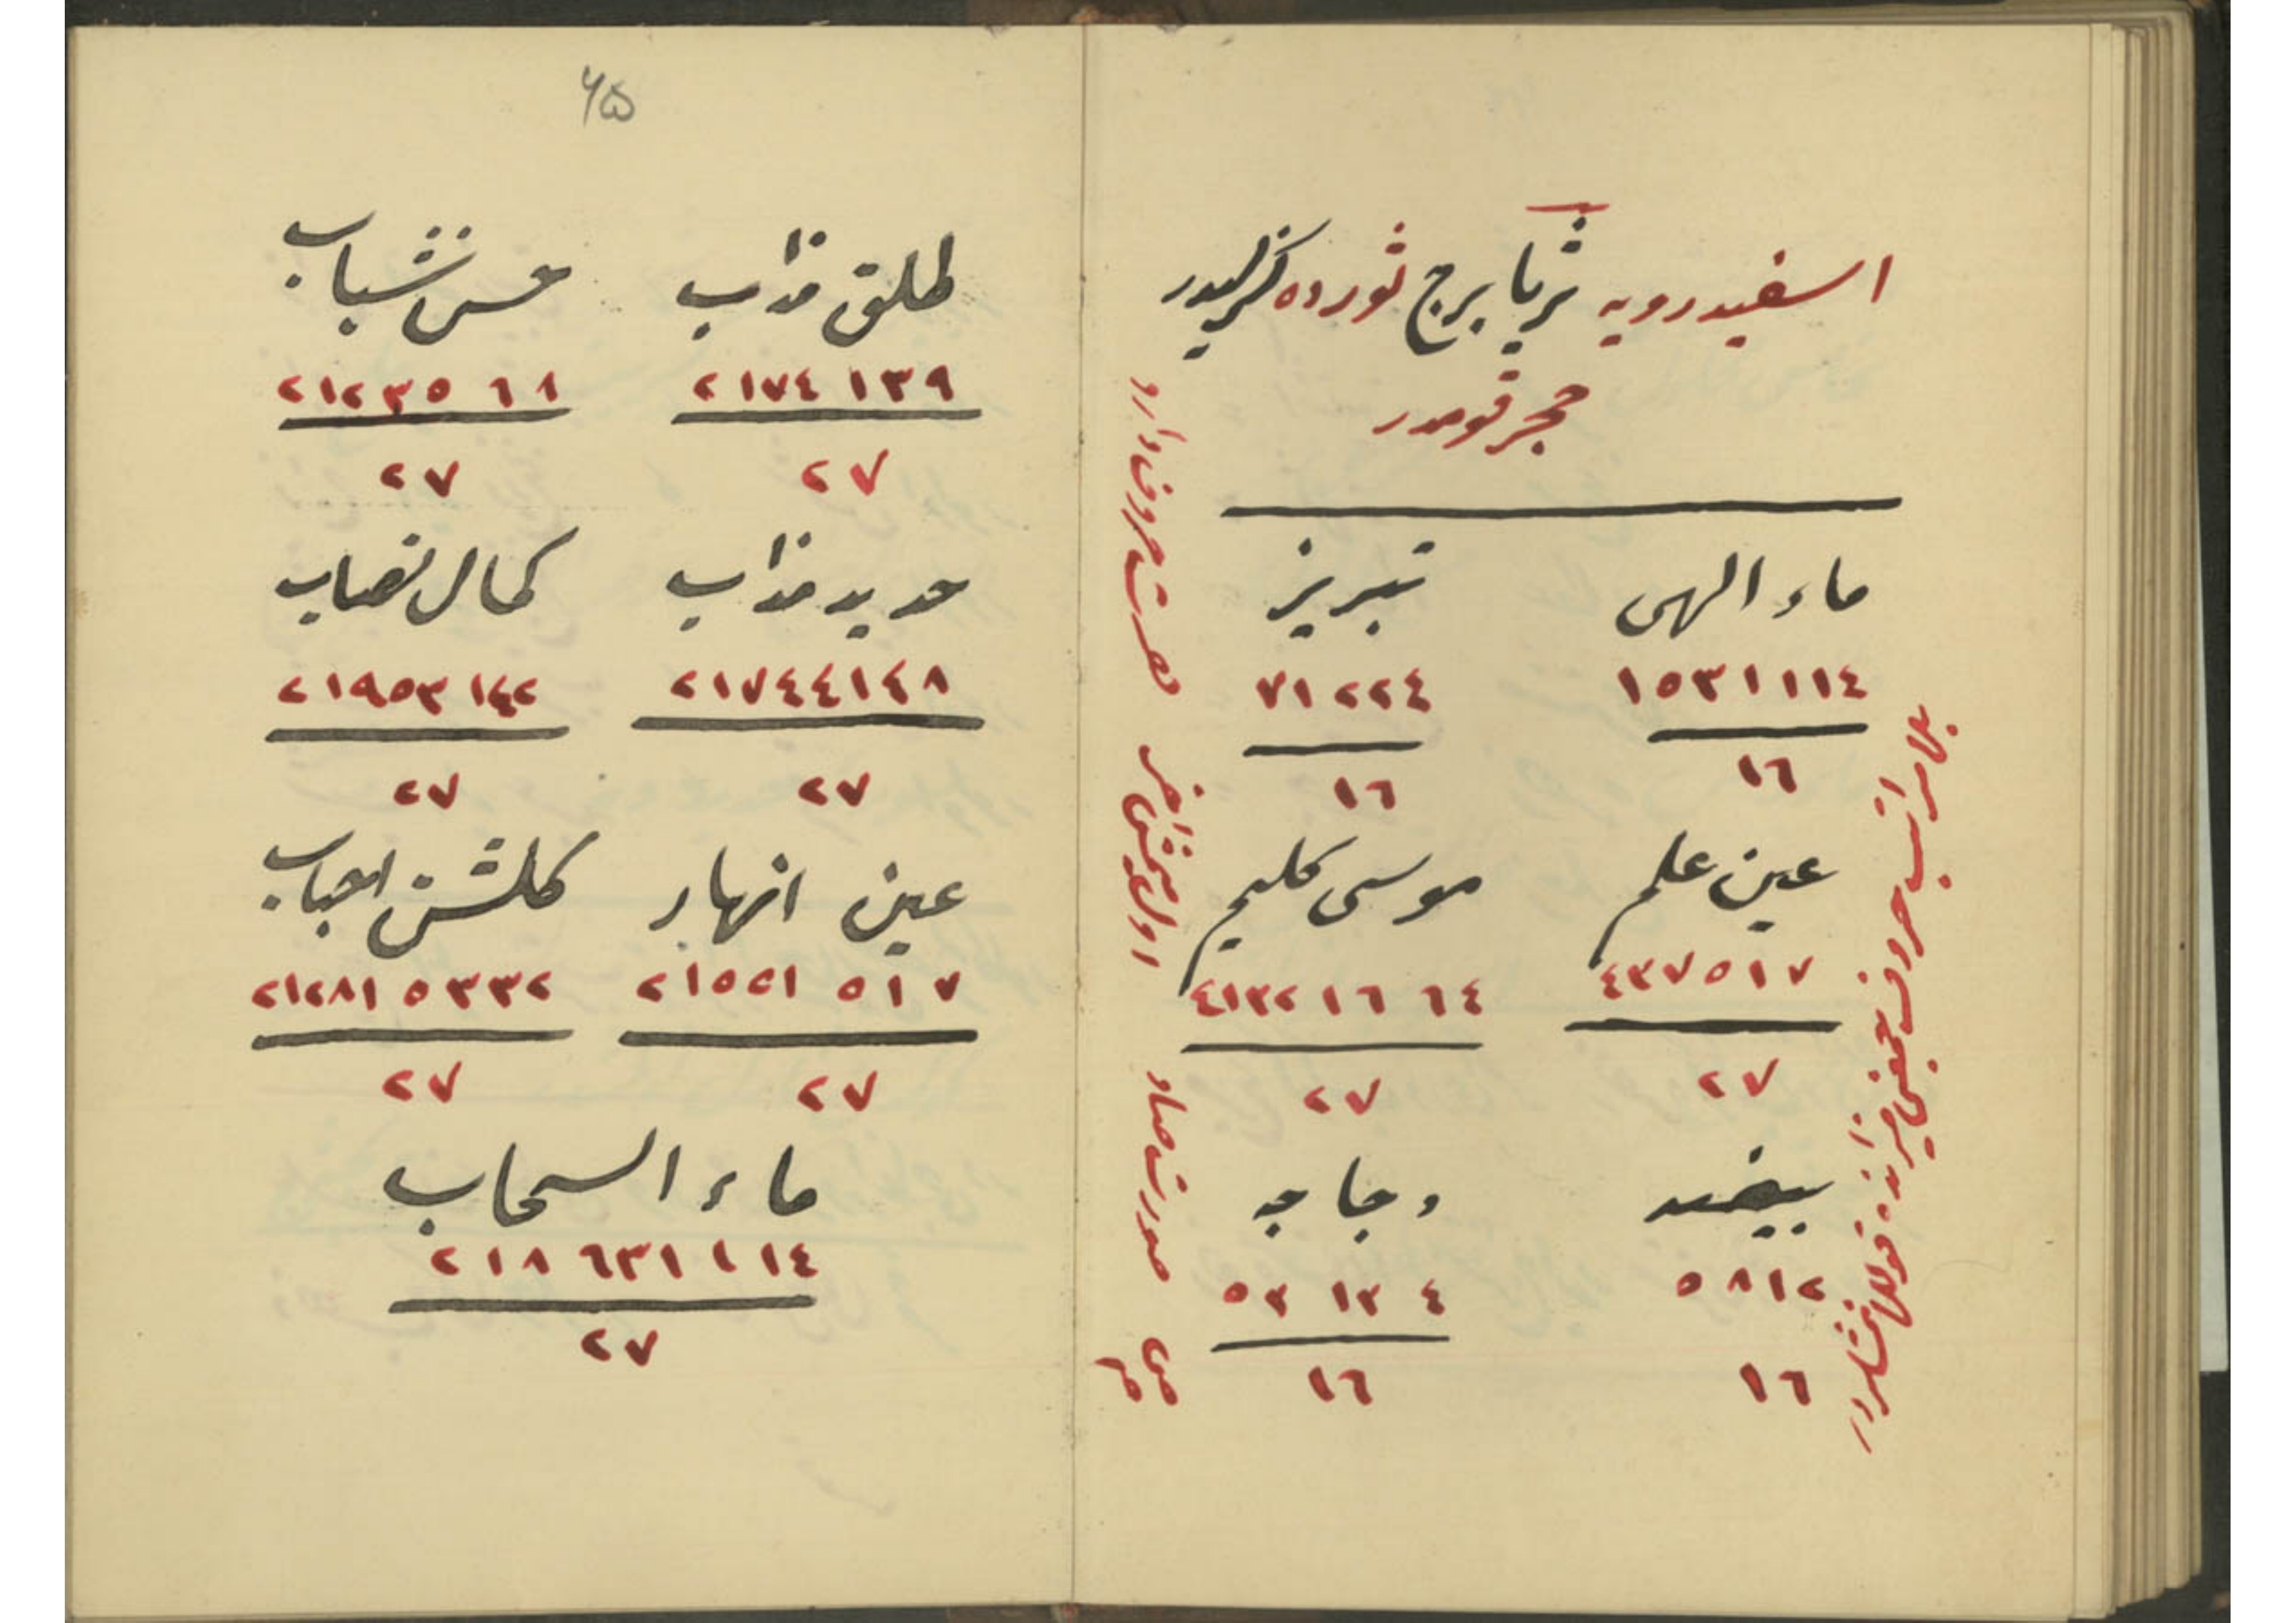 اسفیدرویه ثریا برج ثورده کزلیدر
حجر قومدر
ماء الهی تبریز
١٥٣١١١٤ ٧١٢٢٤
١٦ ١٦
عین علم موسی کلیم
٤٣٧٥١٧ ٤١٣٢١٦٦٤
٢٧ ٢٧
بیضه دجاجه
٥٨١٢ ٥٣١٣٤
١٦ ١٦
بلا مراتب حروف
صورت صاد
ص
م
٦٥
طلق مذاب حسن شباب
٢١٧٤١٣٩ ٢١٢٣٥٦٨
٢٧ ٢٧
حدید مذاب کمال نصاب
٢١٧٤٤١٤٨ ٢١٩٥٣١٤٢
٢٧ ٢٧
عین انهار کلشن احباب
٢١٥٥١٥١٧ ٢١٢٨١٥٣٣٢
٢٧ ٢٧
ماء السحاب
٢١٨٦٣١١١٤
٢٧